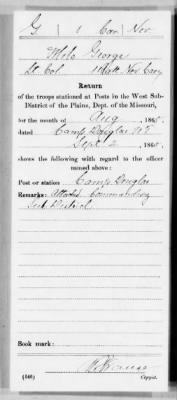 G. | 1 | Cav. | Nev.
Milo George
Lt. Col. 1 Batt. Nev. Cavy
Return
of the troops stationed at Posts in the West Sub-
District of the Plains, Dept. of the Missouri,
for the month of Aug, 1865.
dated Camp Douglas U.T.
Sept. 2, 1865.
shows the following with regard to the officer
named above:
Post or station Camp Douglas
Remarks: Commanding
Sub District
Book mark:
(546) Copyist.